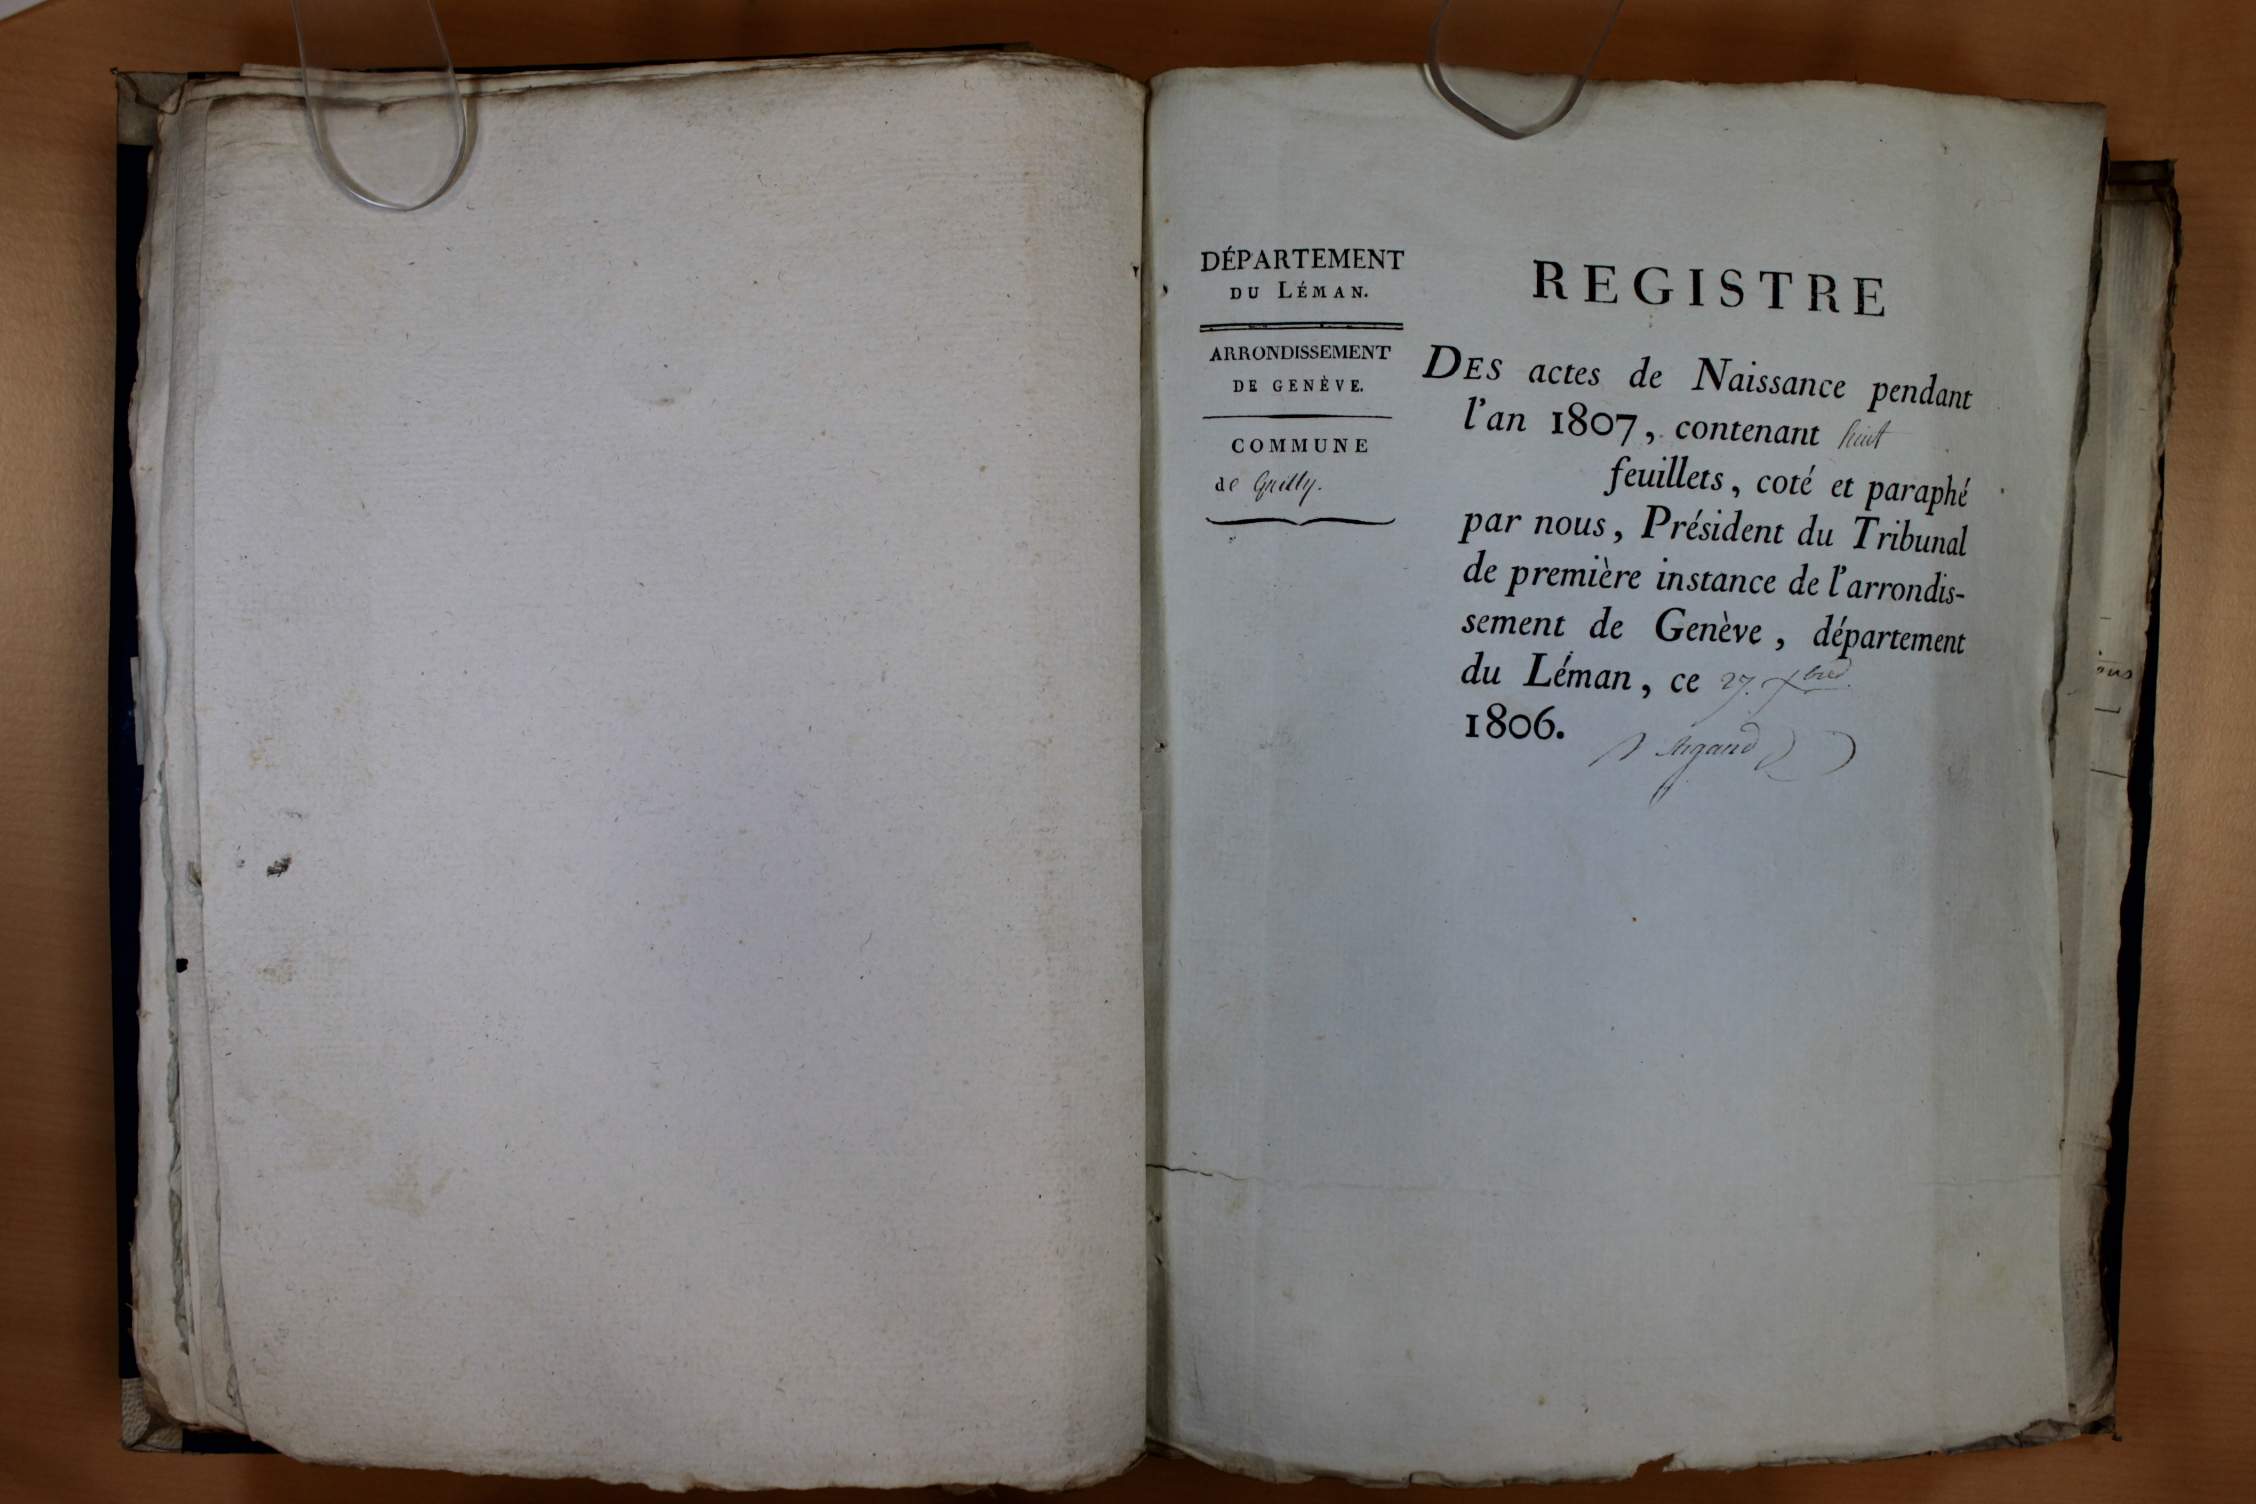 DÉPARTEMENT
DU LÉMAN.
ARRONDISSEMENT
DE GENÈVE.
COMMUNE
de Grilly.
REGISTRE
DES actes de Naissance pendant
l'an 1807, contenant huit
feuillets, coté et paraphé
par nous, Président du Tribunal
de première instance de l'arrondis-
sement de Genève, département
du Léman, ce 27. Xbre
1806.
Argand